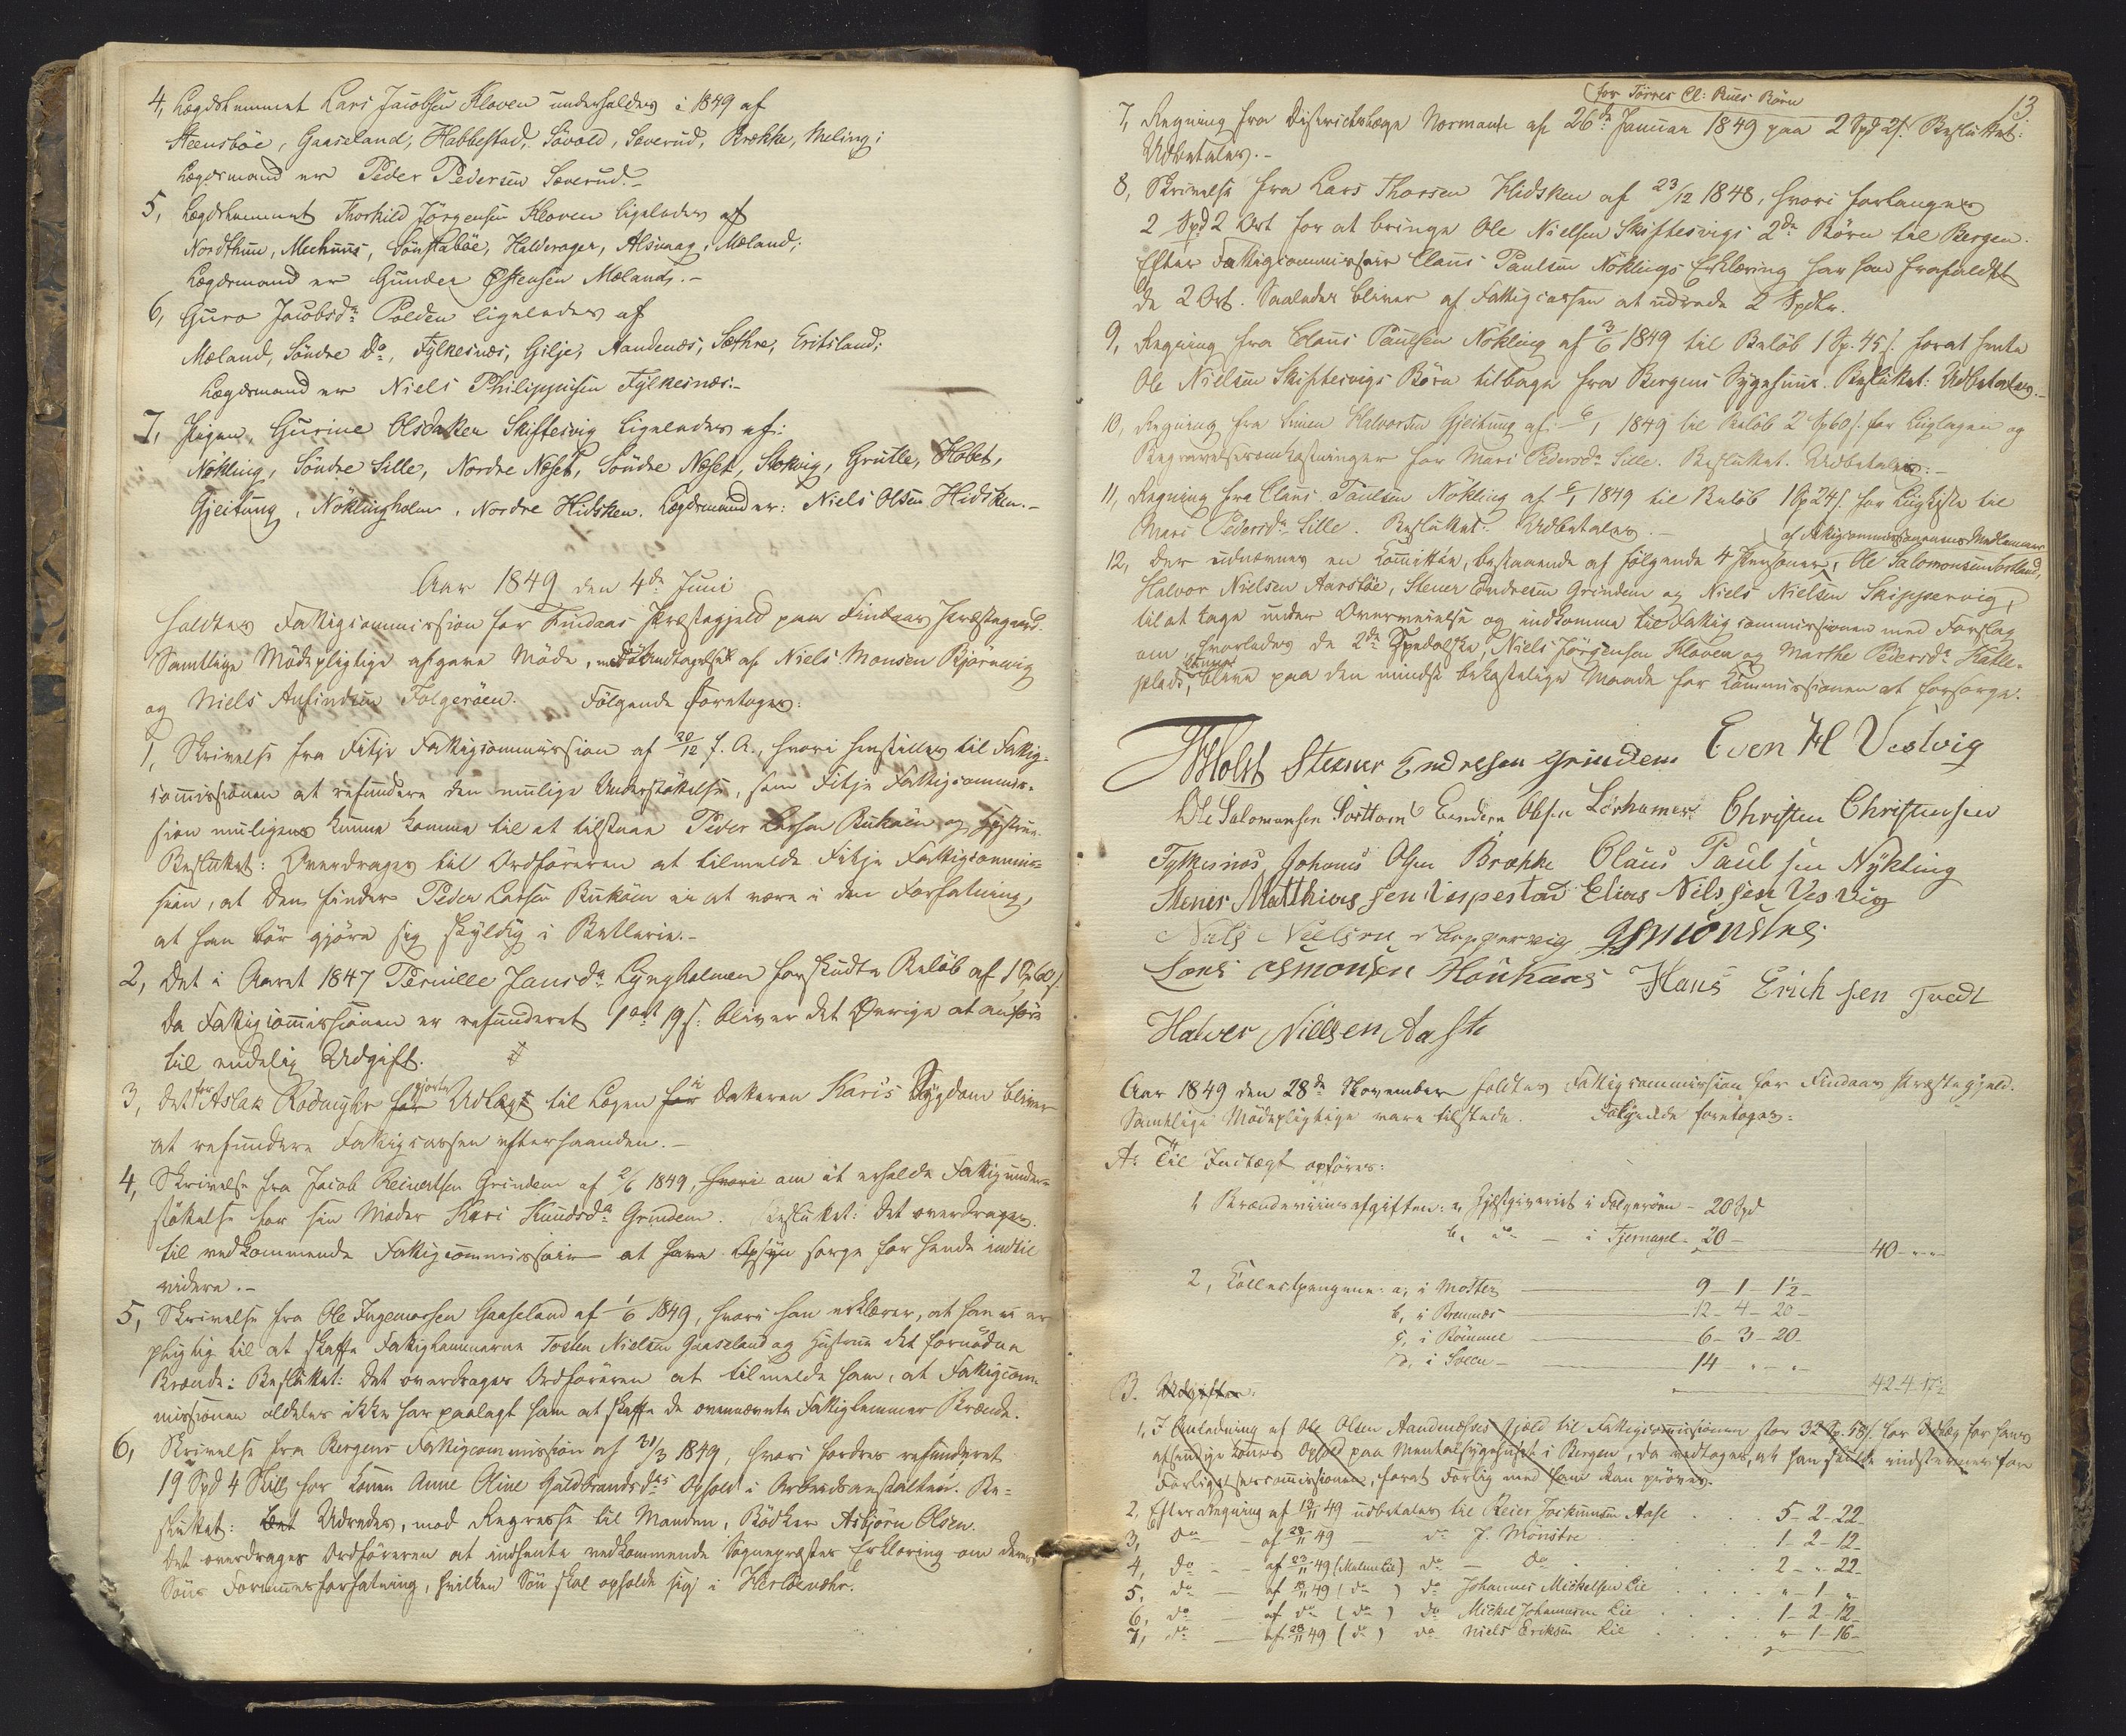 4, Lægdslemmet Lars Jacobsen Kloven underholdes i 1849 af
Steensböe, Gaaseland, Habbestad, Sövold, Sæverud, Brække, Meling;
Lægdsmand er Peder Pedersen Sæverud.-
5, Lægdslemmet Thorkild Jörgensen Kloven ligeledes af
Nordthun, Mechuus, Sönstaböe, Halderager, Alsvaag, Mæland;
Lægdsmand er Gunder Østensen Mæland.-
6, Guro Jacobsdr Polden ligeledes af
Mæland, Söndre Do, Fylkesnæs, Gilje, Aandenæs, Sæthre, Eritsland;
Lægdsmand er Niels Philippusen Fylkesnæs.-
7, Pigen, Gurine Olsdatter Skiftesvig ligeledes af:
Nökling, Söndre Lille, Nordre Næset, Söndre Næset, Stokvig, Grutle, Hobet,
Gjeitung, Nöklingholm, Nordre Hidsken. Lægdsmand er: Niels Olsen Hidsken.-
Aar 1849 den 4de Juni
holdtes Fattigcommission for Findaas Præstegjeld paa Findaas Præstegaard.
Samtlige Mödepligtige afgave Möde, med Undtagelse af Niels Monsen Bjórnevig
og Niels Anfindsen Folgeröen. Følgende foretoges:
1, Skrivelse fra Fitje Fattigcommission af 20/12 f. A., hvori henstilles til Fattig-
commissionen at refundere den mulige Understöttelse, som Fitje Fattigcommis-
sion muligens kunne komme til at tilstaae Peder Larsen Buköen og Hustrue.
Besluttet: Overdrages til Ordföreren at tilmelde Fitje Fattigcommis-
sion, at den finder Peder Larsen Buköen ei at være i den Forfatning,
at han bör gjöre sig skyldig i Betlerie.-
2, Det i Aaret 1847 Pernille Jansdr Lyngholmen forskudte Belöb af 1 Sp 60 s.
da Fattigcommissionen er refunderet 1 ort 19 s. bliver det Övrige at anföre
til endelig Udgift.
3, Det for Aslak gjorte Udlæg til Lægen for i Datteren Karis Sygdom bliver
at refundere Fattigcassen efterhaanden.-
4, Skrivelse fra Jacob Reinertsen Grindem af 2/6 1849, hvori om at erholde Fattigunder-
stöttelse for sin Moder Kari Knudsdr Grindem. Besluttet: Det overdrages
til vedkommende Fattigcommissair at have Opsyn sorge for hende indtil
videre.-
5, Skrivelse fra Ole Ingemorsen Gaaseland af 1/6 1849, hvori han erklærer, at han ei er
pligtig til at skaffe Fattiglemmerne Tosten Nielsen Gaaseland og Hustrue det fornödne
Brænde: Besluttet: Det overdrages Ordföreren at tilmelde ham, at Fattigcom-
missionen aldeles ikke har paalagt ham at skaffe de ovennævnte Fattiglemmer Brænde.
6, Skrivelse fra Bergens Fattigcommission af 31/3 1849, hvori fordres refunderet
19 Spd 4 Skill for Konen Anne Oline Guldbrandsdrs Ophold i Arbeidsanstalten. Be-
sluttet: Det Udredes, med Regresse til Manden, Bödker Asbjörn Olsen.
Det overdrages Ordföreren at indhente vedkommende Sognepræstes Erklæring om deres
Söns Formuesforfatning, hvilken Sön skal opholde sig i Herlöevær.
13
for Törres Cl: Rues Börn
7, Regning fra Districtslæge Normann af 26de Januar 1849 paa 2 Spd 2 s. Besluttet:
Udbetales.-
8, Skrivelse fra Lars Thorsen Hidsken af 23/12 1848, hvori forlanges
2 Spd 2 Ort for at bringe Ole Nielsen Skiftesvigs 2de Börn til Bergen.
Efter Fattigcommissair Claus Paulsen Nöklings Erklæring har han frafaldet
de 2 Ort. Saaledes bliver af Fattigcassen at udrede 2 Spdlr.
9, Regning fra Claus Paulsen Nökling af 3/6 1849 til Belöb 1 Sp. 45 s. for at hente
Ole Nielsen Skiftesvigs Börn tilbage fra Bergens Sygehuus. Besluttet: Udbetales.-
10, Regning fra Simen Halvorsen Gjeitung af 6/1 1849 til Belöb 2 Sp 60 s. for Liiglagen og
Begravelsesomkostninger for Mari Pedersdr Lille. Besluttet. Udbetales.-
11, Regning fra Claus Paulsen Nökling af 6/1 1849 til Belöb 1 Sp 24 s. for Liigkiste til
Mari Pedersdr Lille. Besluttet: Udbetales.-
af Fattigcommissionens Medlemmer
12, Der udnævnes en Committée, bestaaende af følgende 4 Personer, Ole Salomonsen Sortland,
Halvor Nielsen Aarsböe, Stener Endresen Grindem og Niels Nielsen Skippervig,
til at tage under Overveielse og indkomme til Fattigcommissionen med Forslag
om, hvorledes de 2de Spedalske, Niels Jörgensen Kloven og Marthe Pedersdr Katle-
plads, kunne blive paa den mindst bekostelige Maade for Commissionen at forsorge.
Holst Stener Endresen Grindem Even H Vestvig
Ole Salomonsen Endre Olsen Christen Christensen
Fylkesnes Johans Olsen Brække Claus Paulsen Nykling
Stener Matthiassen Vespestad Elias Nilssen Vesvig
Niels Nielsen Skippervig
Lars Asmonsen Houkaas Hans Erichsen Tvedt
Halver Nillsen
Aar 1849 den 28de November holdtes Fattigcommission for Findaas Præstegjeld.
Samtlige Mödepligtige vare tilstede. Følgende foretoges:
A. Til Indtægt opföres:
1 Brændeviinsafgiften: a, Gjæstgiveriet i Folgeröen - 20 Spd
b, do - i Tjernagel - 20 - 40 - " - "
2, Collectpengene: a, i Moster 9 - 1 - 1½ -
b, i Bremnæs 12 - 4 - 20 -
c, i Römme 6 - 3 - 20 -
d, i Sveen - 14 - " - " -
42-4-17½
B. Udgifter:
1, I Anledning af Ole Olsen Aandenæs's Gjeld til Fattigcommissionen stor 32 Sp. 58 s. for Udlæg for hans
afsindige Kones Ophold paa Mentalsygehuset i Bergen, da vedtoges, at han skulde indstævnes for
Forligelsescommissionen, forat Forlig med ham kan pröves.
2, Efter Regning af 13/11 49 udbetales til Reier Joakimsen Aase . . . 5 - 2 - 22 -
3, Do - af 28/11 49 - do J. Mönstre 1 - 2 - 12 -
4, do - - af 23/11 49 do - do 2 - " - 22 -
5, do - af 13/11 49 (do) do Johannes Mickelsen Lie . . . " - 1 - "
6, do - af do (do) do Mickel Johannesen Lie . . . 1 - 2 - 12 -
7, do - af 28/11 49 (do) do Niels Eriksen Lie . . . " - 1 - 16 -